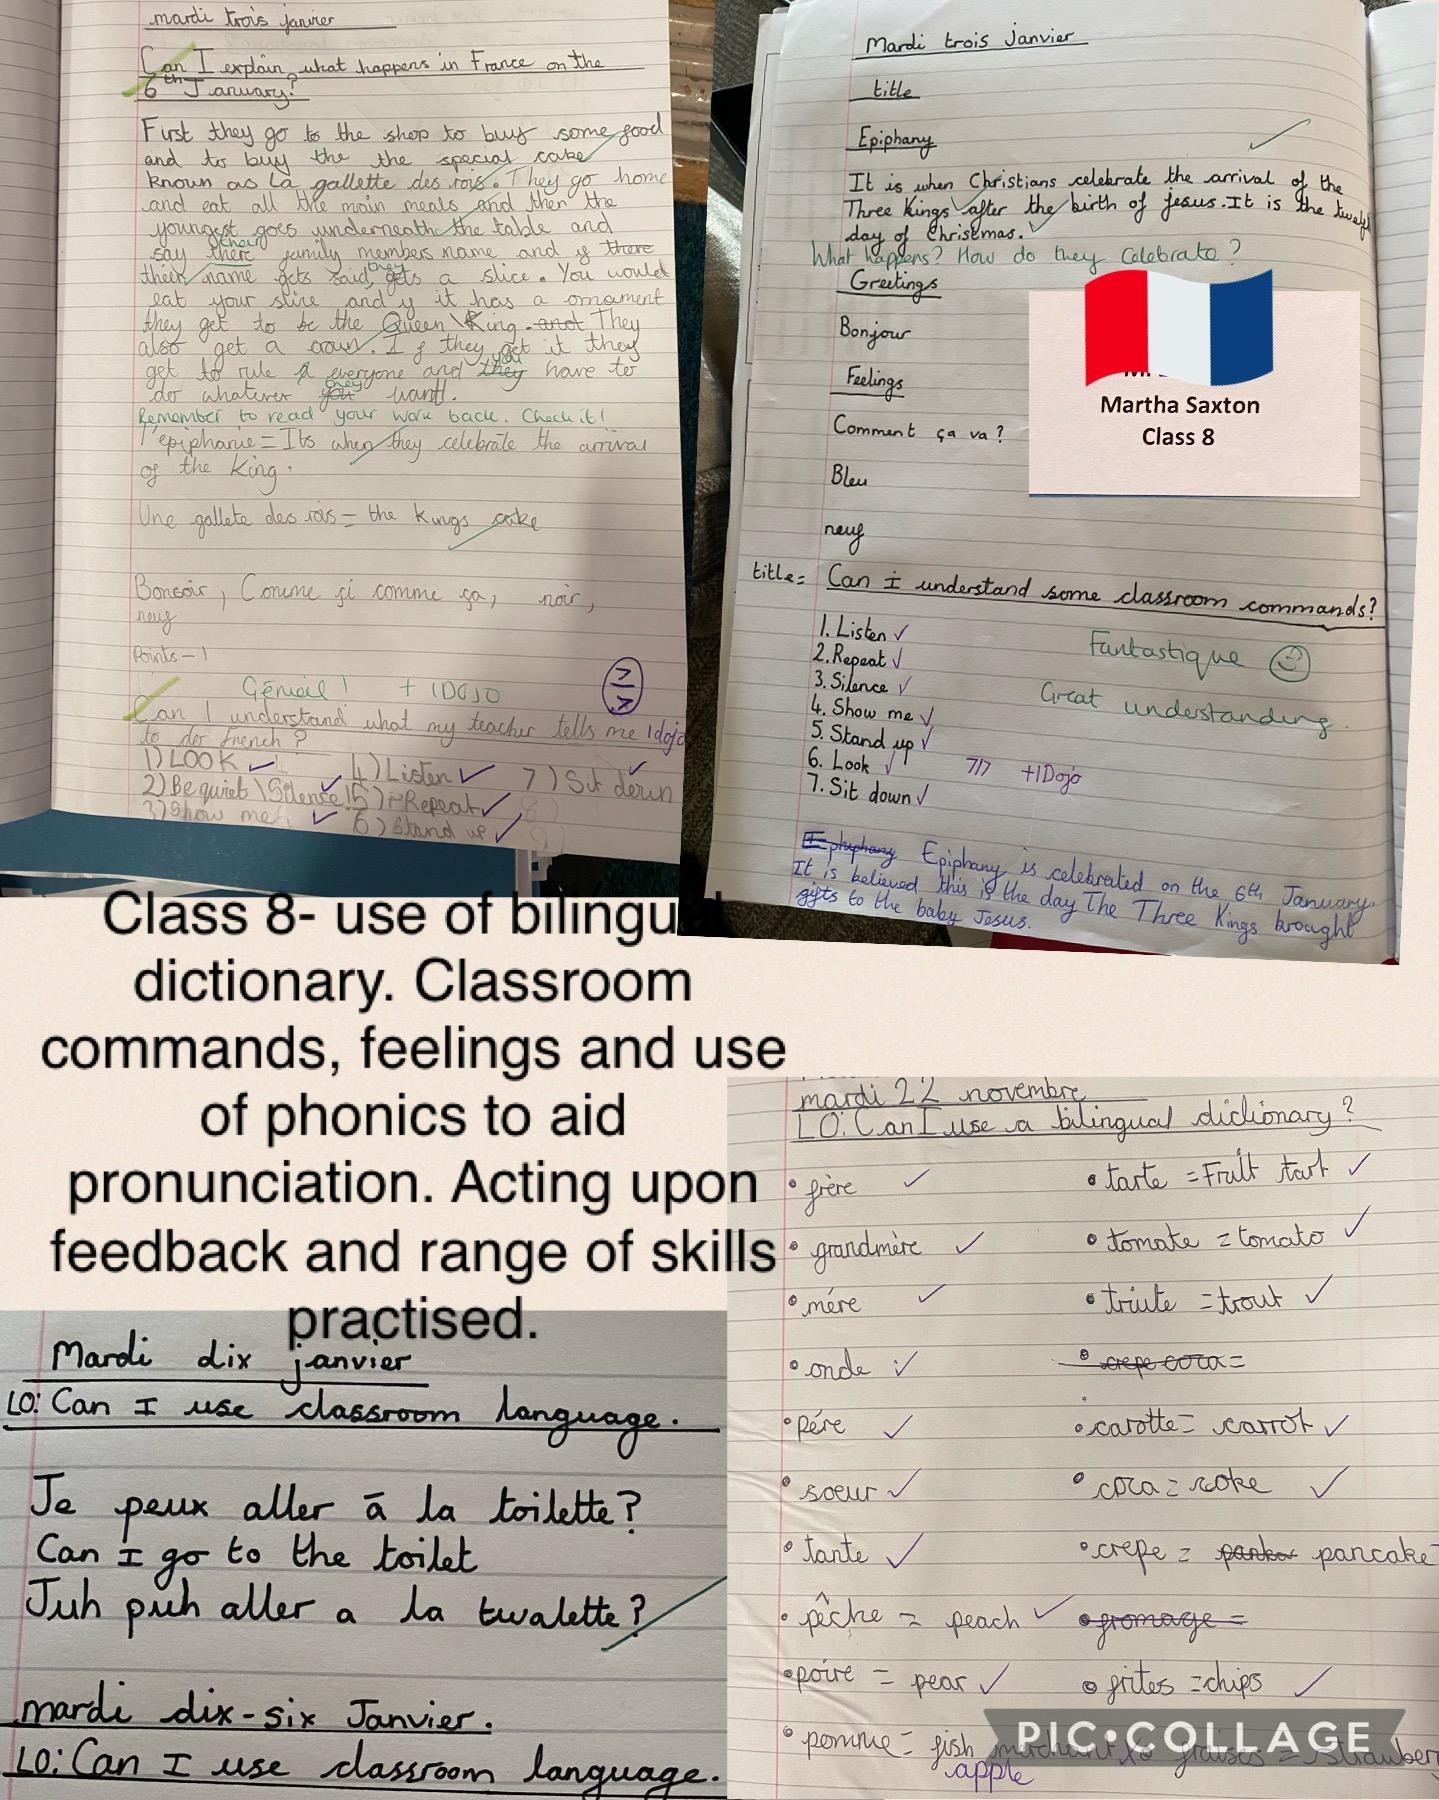 mardi trois janvier
Can I explain what happens in France on the
6th January?
First they go to the shop to buy some food
and to buy the the special cake
known as La gallette des rois. They go home
and eat all the main meals and then the
youngest goes underneath the table and
their
say there family members name and if there
they
their name gets said, gets a slice. You would
eat your slice and if it has a ornament
they get to be the Queen \ King. and They
also get a crown. If they get it they
you
get to rule everyone and they have to
they
do whatever you want.
Remember to read your work back. Check it!
l'epiphanie = Its when they celebrate the arrival
of the King.
Une gallete des rois = the Kings cake
Bonsoir, Comme çi comme ça, noir,
neuf
Points - 1
Génial! + 1DOJO
7/7
Can I understand what my teacher tells me 1dojo
to do french?
1) LOOK 4) Listen 7) Sit down
2) Be quiet \ Silence 5) Repeat 8)
3) Show me 6) Stand up 9)
Mardi trois janvier
title
Epiphany
It is when Christians celebrate the arrival of the
Three Kings after the birth of jesus. It is the twelfh
day of Christmas.
What happens? How do they celebrate?
Greetings
Bonjour
Feelings
Comment ça va?
Bleu
neuf
Martha Saxton
Class 8
title= Can i understand some classroom commands?
1. Listen
2. Repeat
3. Silence
4. Show me
5. Stand up
6. Look
7. Sit down
Fantastique
Great understanding.
7/7 +1Dojo
Ephiphany Epiphany is celebrated on the 6th January.
It is believed this is the day The Three Kings brought
gifts to the baby Jesus.
Class 8- use of bilingual
dictionary. Classroom
commands, feelings and use
of phonics to aid
pronunciation. Acting upon
feedback and range of skills
practised.
Mardi dix janvier
LO: Can I use classroom language.
Je peux aller ā la toilette?
Can I go to the toilet
Juh puh aller a la twalette?
mardi dix-six Janvier.
LO: Can I use classroom language.
mardi 22 novembre
LO: Can I use a bilingual dictionary?
• frère
• grandmère
• mére
• onde
• pére
• soeur
• tante
• pêche = peach
• poire = pear
• pomme = fish
apple
• tarte = Fruit tart
• tomate = tomato
• triute = trout
• crepe coca=
• carotte= carrot
• coca = coke
• crepe = pancake
• fromage =
• frites = chips
fraises = Strawber
PIC•COLLAGE